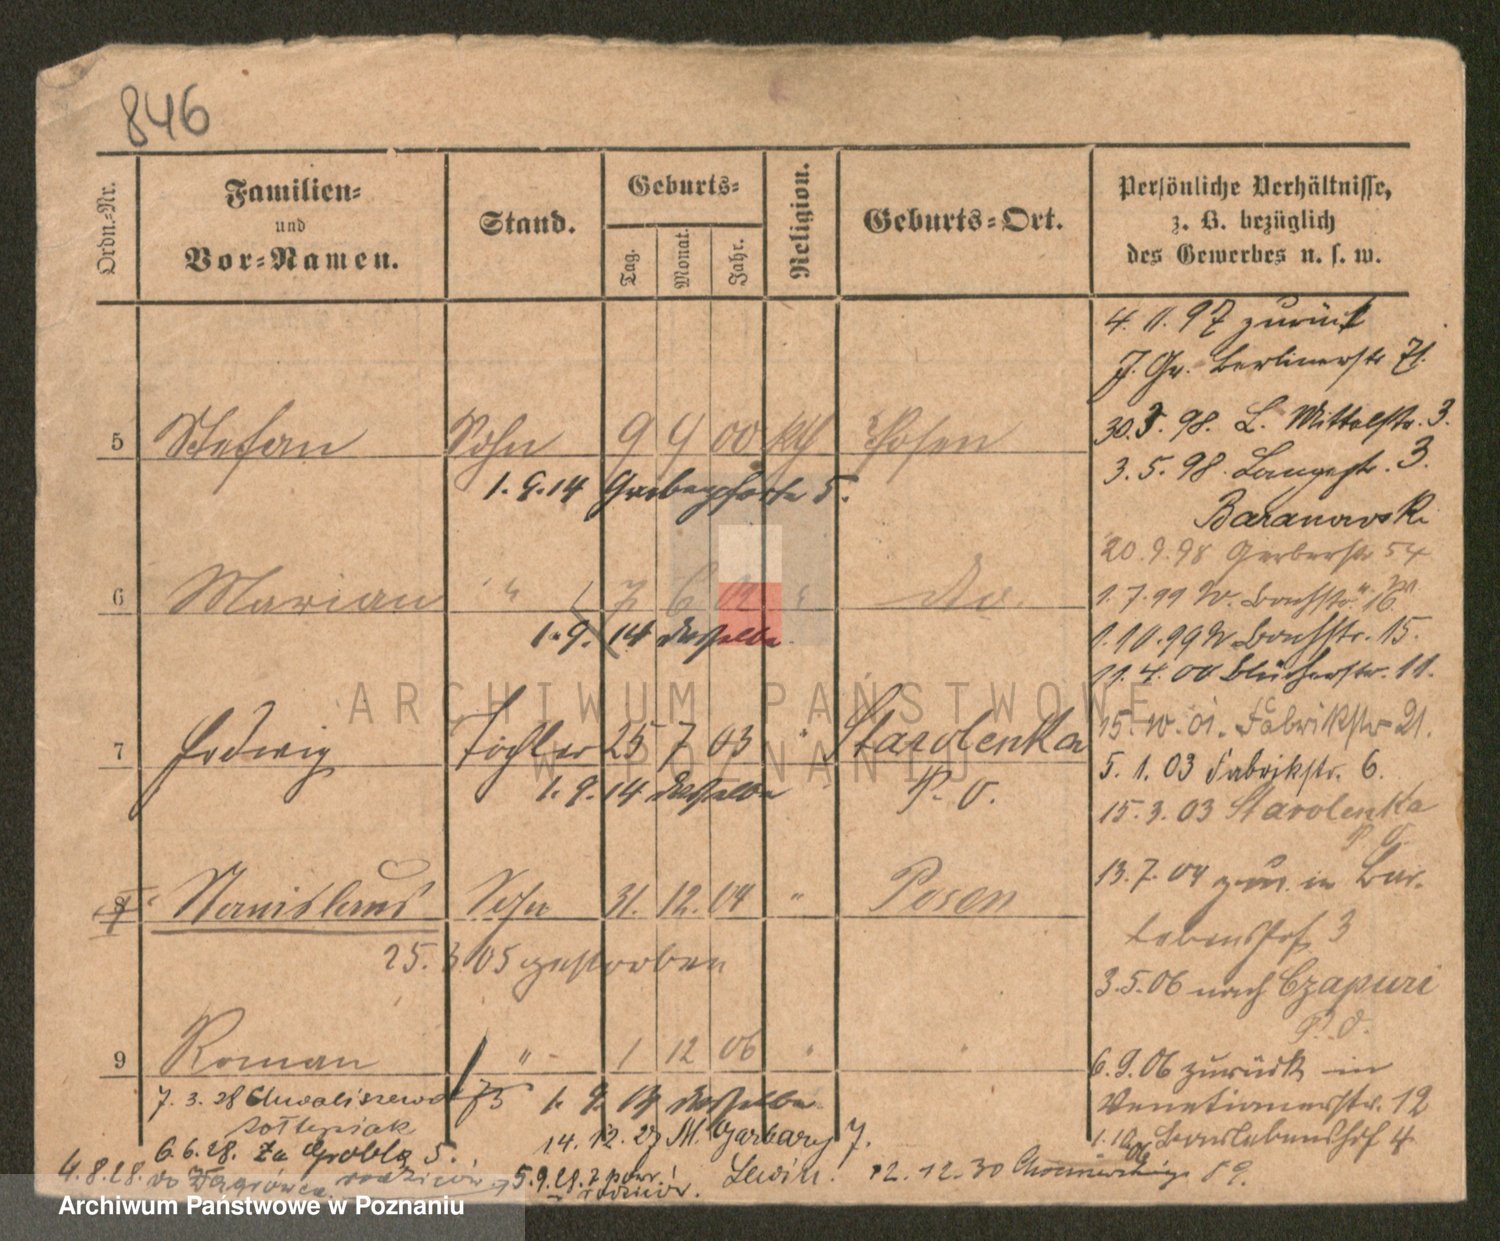 846
Ordn.-Nr.
Familien-
und
Vor-Namen.
Stand.
Geburts-
Tag.
Monat.
Jahr.
Religion.
Geburts-Ort.
Persönliche Verhältnisse,
z. B. bezüglich
des Gewerbes u. s. w.
5 Stefan Sohn 9 9 00 kth Posen
1. 9. 14 Grabenpforte 5.
6 Marian " 7 6 do.
1. 9. 14 dasselbe
7 Hedwig Tochter 25 7 03 " Starolenka
1. 9. 14 dasselbe P. O.
8 Stanislaus Sohn 31. 12. 04 " Posen
25. 3 05 gestorben
9 Roman " 1 12 06 "
7. 3. 28 Chwaliszewo 73 1. 9. 14 dasselbe
14. 12. 27 M. Garbary 7.
6.6.28. Za Groblą 5.
4.8.28. do rodziców 5.9.28. z powr. Lewin. 12. 12. 30
rodziców.
4. 11. 97 zurück
J. Gr. Berlinerstr 71.
30.3. 98. L. Mittelstr. 3.
3. 5. 98. Langestr. 3.
Baranowski
20. 9. 98 Gerberstr 54
1. 7. 99 W. Bachstr. 16
1. 10. 99 W. Bachstr. 15.
11. 4. 00 Blücherstr. 11.
15. 10. 01. Fabrikstr 21.
5. 1. 03 Fabrikstr. 6.
15. 3. 03 Starolenka
P. O.
13. 7. 04 zur. in Bar-
lebenshof 3
3. 5. 06 nach Czapuri
P. O.
6. 9. 06 zurück in
Venetianerstr. 12
1. 10. 06 Barlebenshof 4
ARCHIWUM PAŃSTWOWE
W POZNANIU
Archiwum Państwowe w Poznaniu